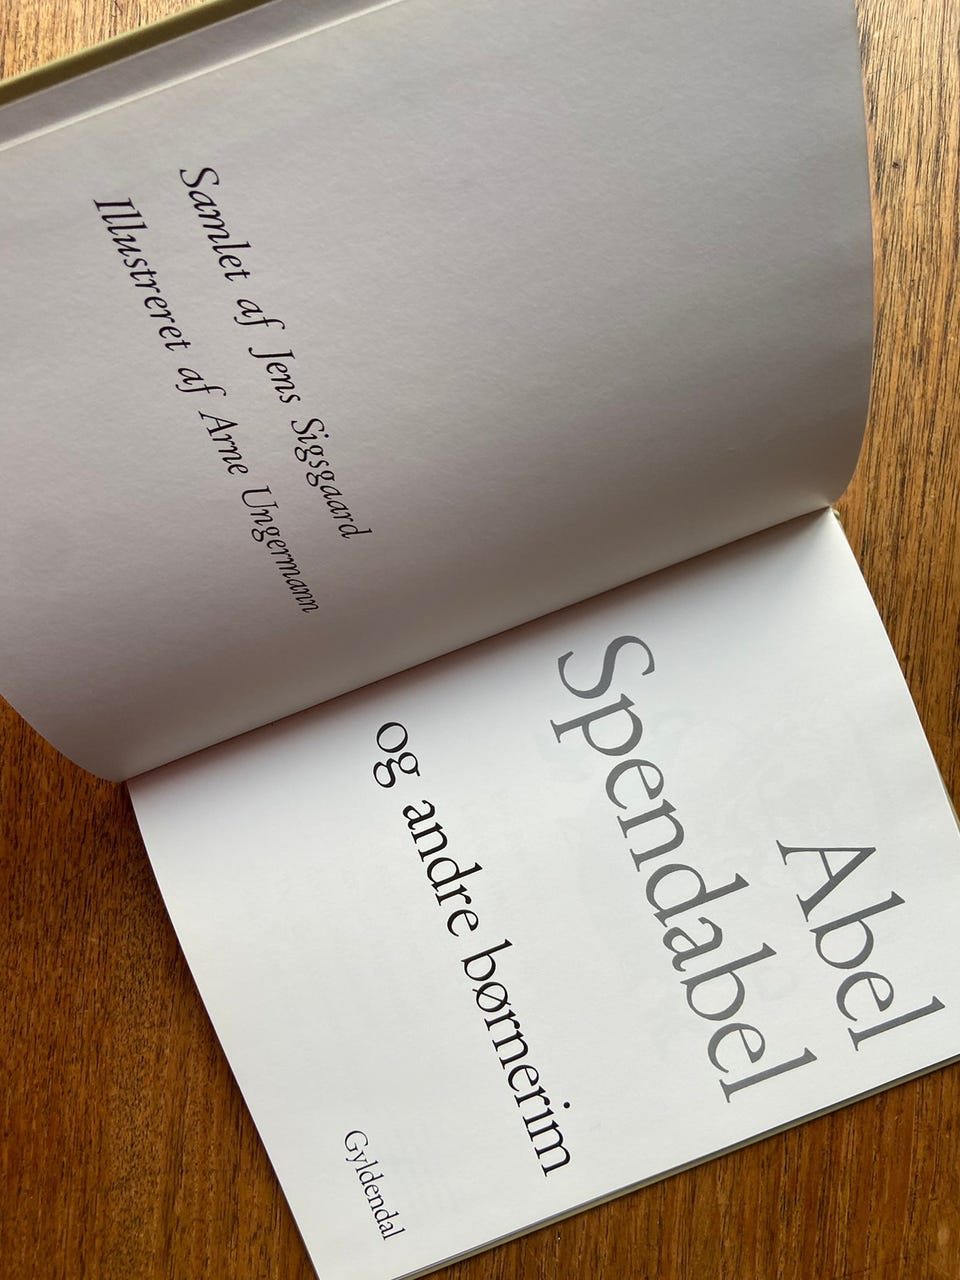 Samlet af Jens Sigsgaard
Illustreret af Arne Ungermann
Abel
Spendabel
og andre børnerim
Gyldendal